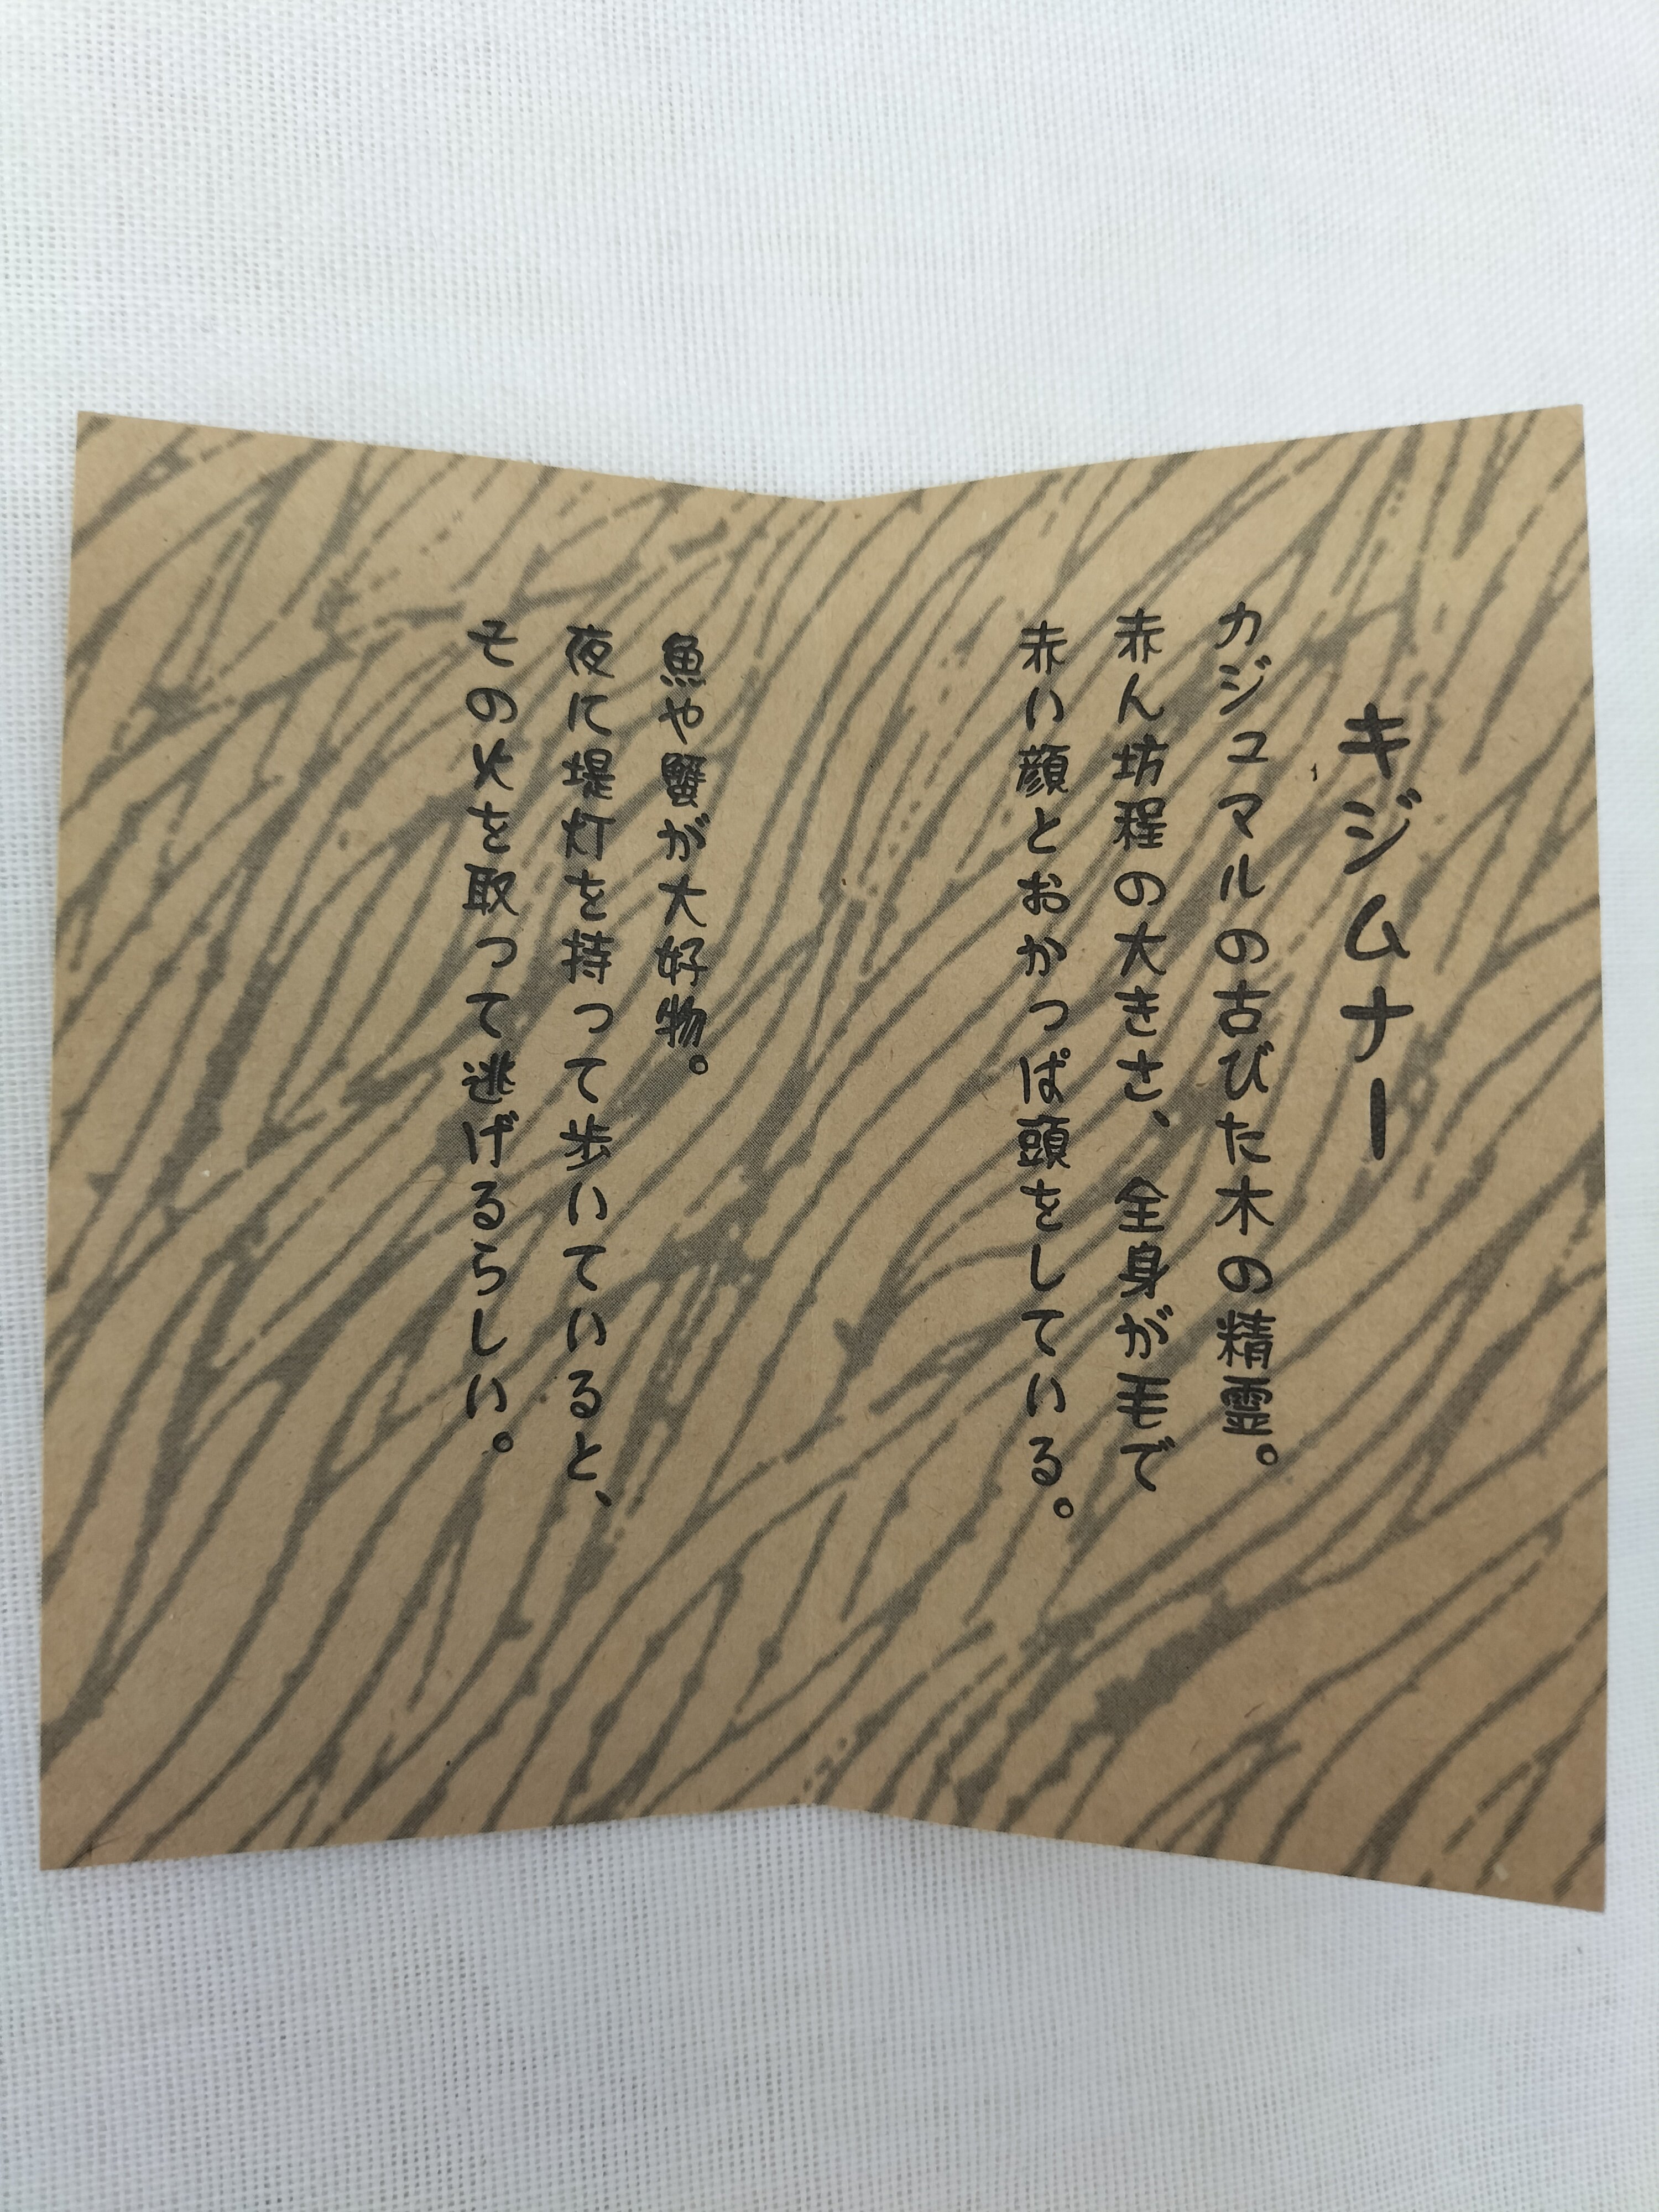 キジムナー
カジュマルの古びた木の精霊。
赤ん坊程の大きさ、全身が毛で
赤い顔とおかっぱ頭をしている。
魚や蟹が大好物。
夜に堤灯を持って歩いていると、
その火を取って逃げるらしい。